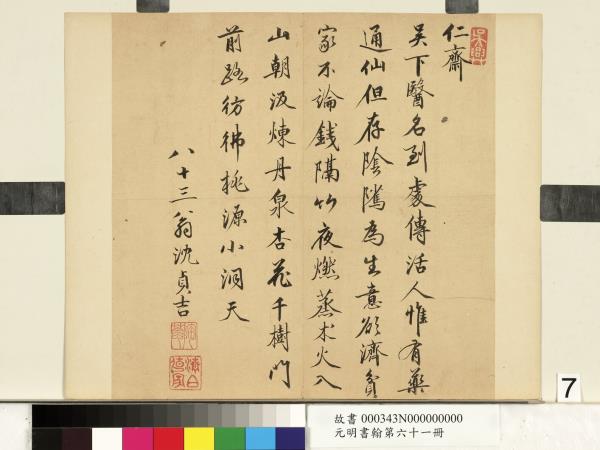 仁齋
吳下醫名到處傳活人惟有藥
通仙但存陰隲為生意欲濟貧
家不論錢隔竹夜燃蒸朮火入
山朝汲煉丹泉杏花千樹門
前路彷彿桃源小洞天
八十三翁沈貞吉
7
故書 000343N000000000
元明書翰第六十一冊